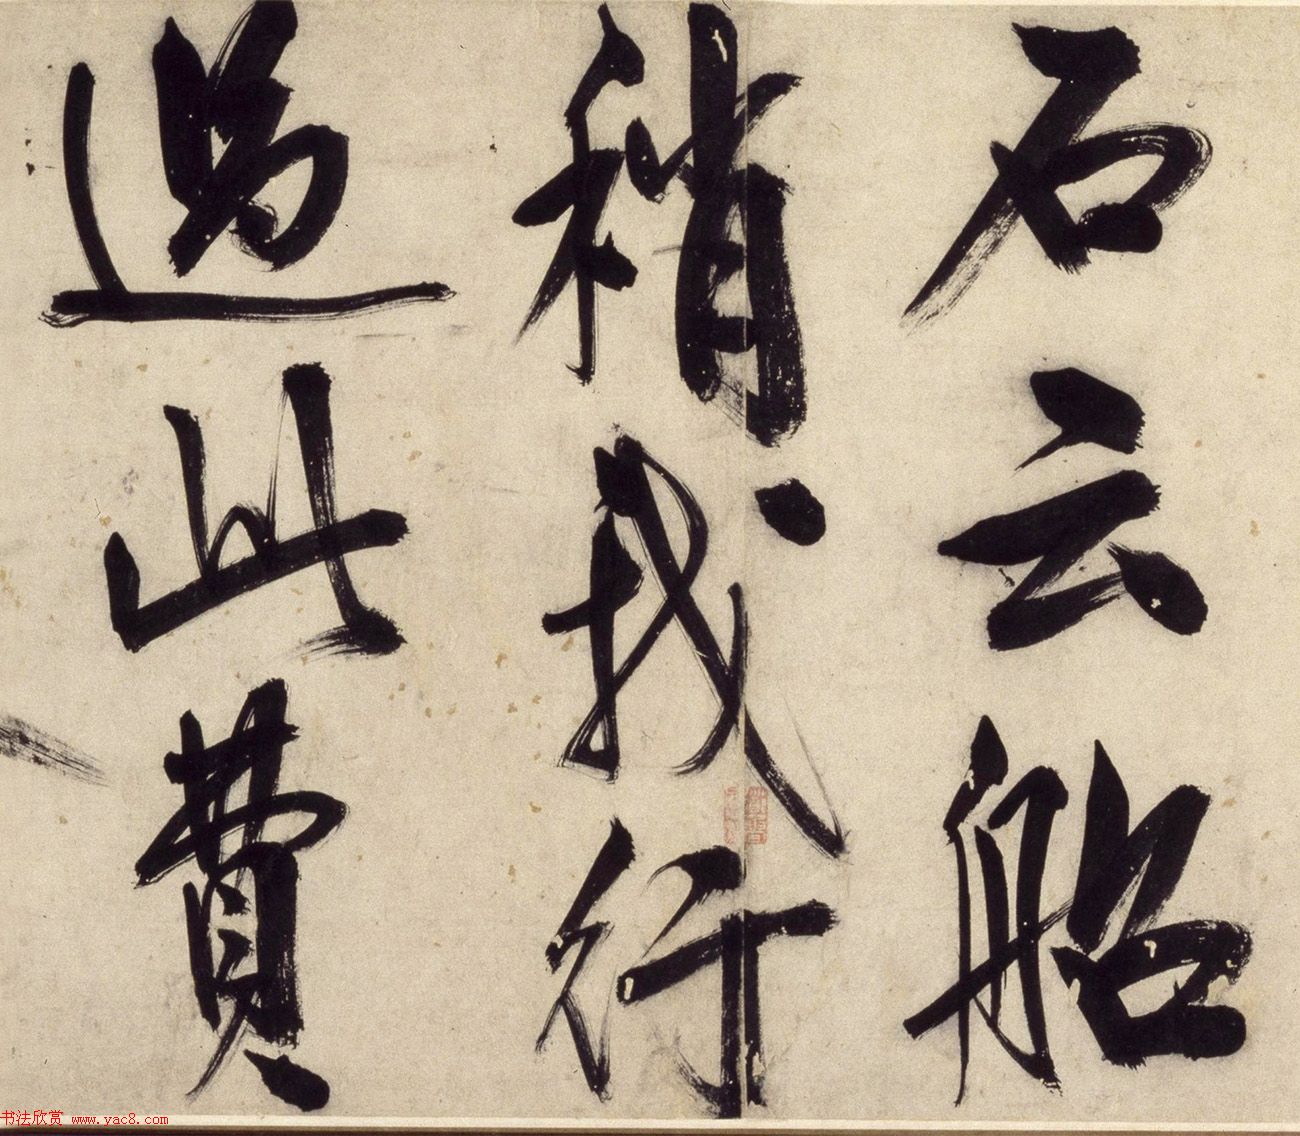 石云船
稍我行
過此費
书法欣赏 www.yac8.com